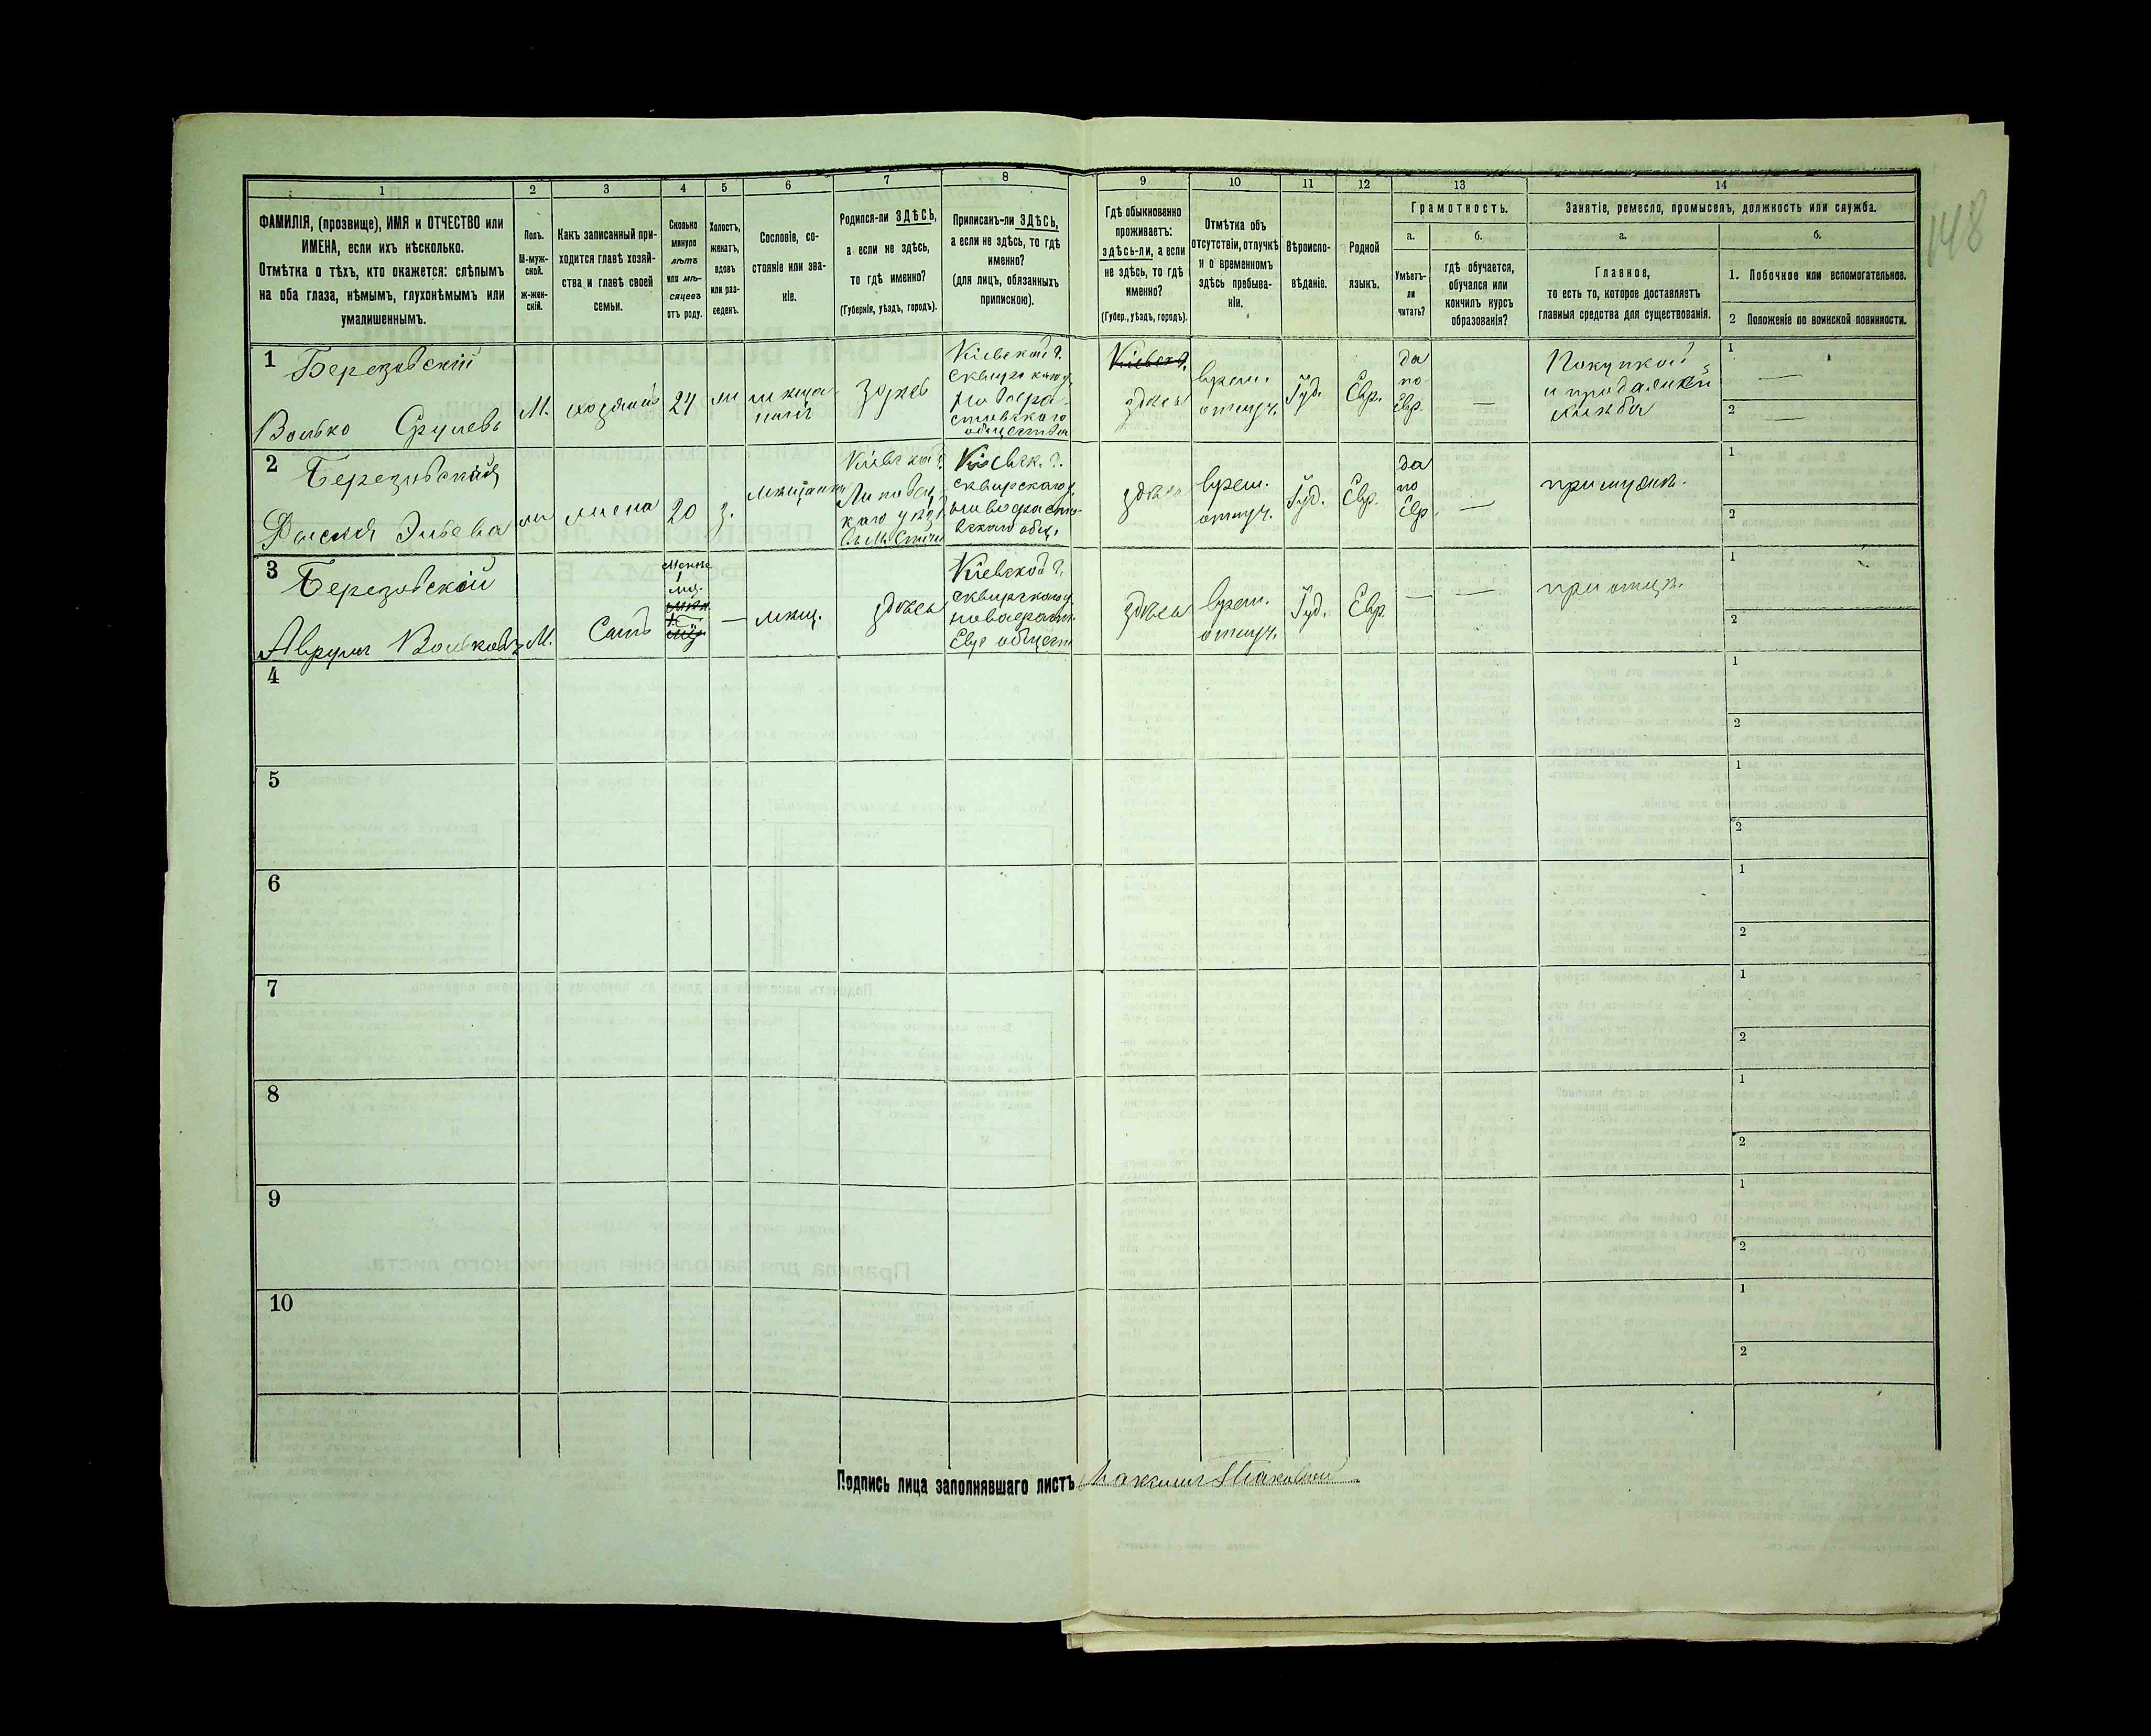 148
1 2 3 4 5 6 7 8 9 10 11 12 13 14
ФАМИЛІЯ, (прозвище), ИМЯ и ОТЧЕСТВО или
ИМЕНА, если ихъ нѣсколько.
Отмѣтка о тѣхъ, кто окажется: слѣпымъ
на оба глаза, нѣмымъ, глухонѣмымъ или
умалишеннымъ.
Полъ.
М-муж-
ской.
ж-жен-
скій.
Какъ записанный при-
ходится главѣ хозяй-
ства и главѣ своей
семьи.
Сколько
минуло
лѣтъ
или мѣ-
сяцевъ
отъ роду.
Холостъ,
женатъ,
вдовъ
или раз-
веденъ.
Сословіе, со-
стояніе или зва-
ніе.
Родился-ли ЗДѢСЬ,
а если не здѣсь,
то гдѣ именно?
(Губернія, уѣздъ, городъ).
Приписанъ-ли ЗДѢСЬ,
а если не здѣсь, то гдѣ
именно?
(для лицъ, обязанныхъ
припискою).
Гдѣ обыкновенно
проживаетъ:
здѣсь-ли, а если
не здѣсь, то гдѣ
именно?
(Губер., уѣздъ, городъ).
Отмѣтка объ
отсутствіи, отлучкѣ
и о временномъ
здѣсь пребыва-
ніи.
Вѣроиспо-
вѣданіе.
Родной
языкъ.
Грамотность.
а.
Умѣетъ-
ли
читать?
б.
гдѣ обучается,
обучался или
кончилъ курсъ
образованія?
Занятіе, ремесло, промыселъ, должность или служба.
а.
Главное,
то есть то, которое доставляетъ
главныя средства для существованія.
б.
1. Побочное или вспомогательное.
2 Положеніе по воинской повинности.
1 Березовскій
Волько Срулевъ
М.
хозяинъ
24
здѣсь
Кіевской г.
общества
Кіевск. г.
здѣсь
врем.
отлуч.
Іуд.
Евр.
да
по
Евр.
—
Покупкой
и продажей
хлѣба
1 —
2 —
2 Березовская
жена
20
з.
мѣщанка
Кіевской г.
Кіевск. г.
сквирскаго у.
здѣсь
врем.
отлуч.
Іуд.
Евр.
да
по
Евр.
—
при мужѣ.
1
2
3 Березовскій
Аврумъ Вольковъ
М.
Сынъ
менѣе
1
мѣс.
—
мѣщ.
здѣсь
Кіевской г.
здѣсь
врем.
отлуч.
Іуд.
Евр.
—
—
при отцѣ.
1
2
4
1
2
5
1
2
6
1
2
7
1
2
8
1
2
9
1
2
10
1
2
Подпись лица заполнявшаго листъ